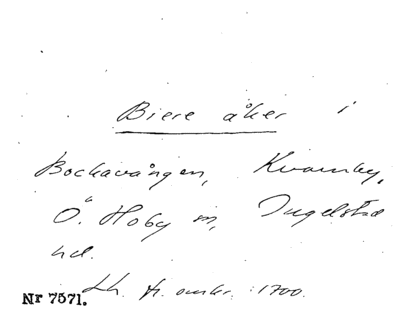 Biere åker i
Bockavången, Kvarnby,
Ö. Hoby sn, Ingelstad
hd.
Lh. fr. omkr. 1700.
Nr 7571.